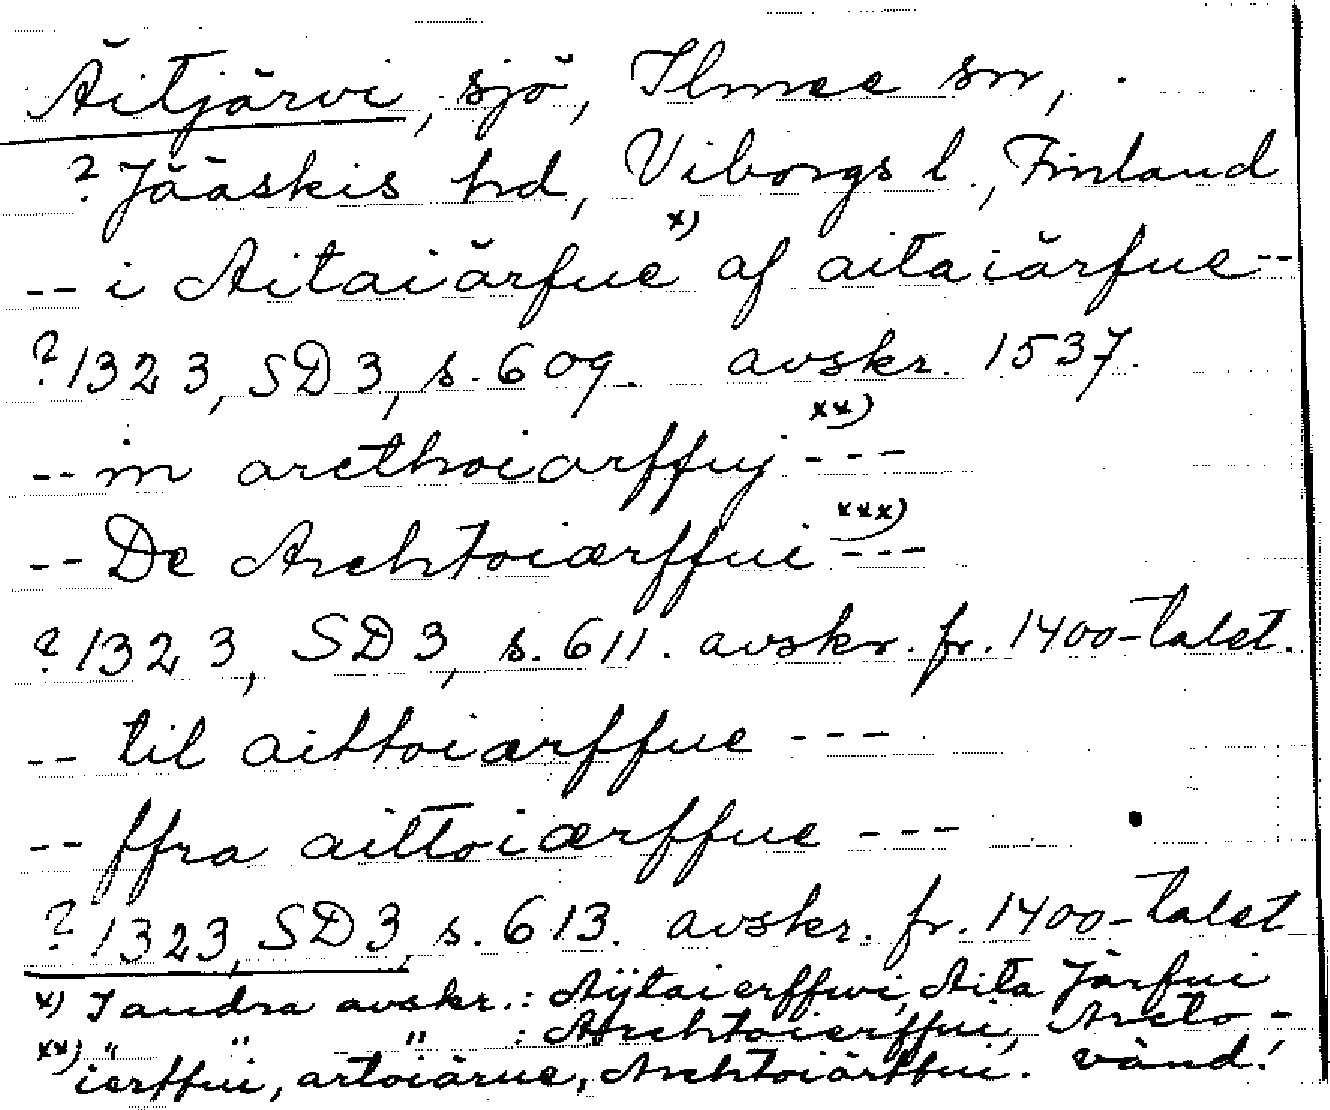 Äitjärvi, sjö, Ilmee sn,
? Jääskis hd, Viborgs l., Finland
-- i Aitaiärfue x) af aitaiärfue --
? 1323, SD 3, s. 609. avskr. 1537.
-- in arethoiarffuj xx) ---
-- De Arehtoiærffui xxx) ---
? 1323, SD 3, s. 611. avskr. fr. 1400-talet.
-- til aittoiærffue ---
-- ffra aittoiærffue ---
? 1323, SD 3, s. 613. avskr. fr. 1400-talet
x) I andra avskr.: Aÿtaierffwi, Aita Järfui
xx) " " " : Arehtoierffui, Areto-
ierffui, artoiärue, Arehtoiärffui. vänd!